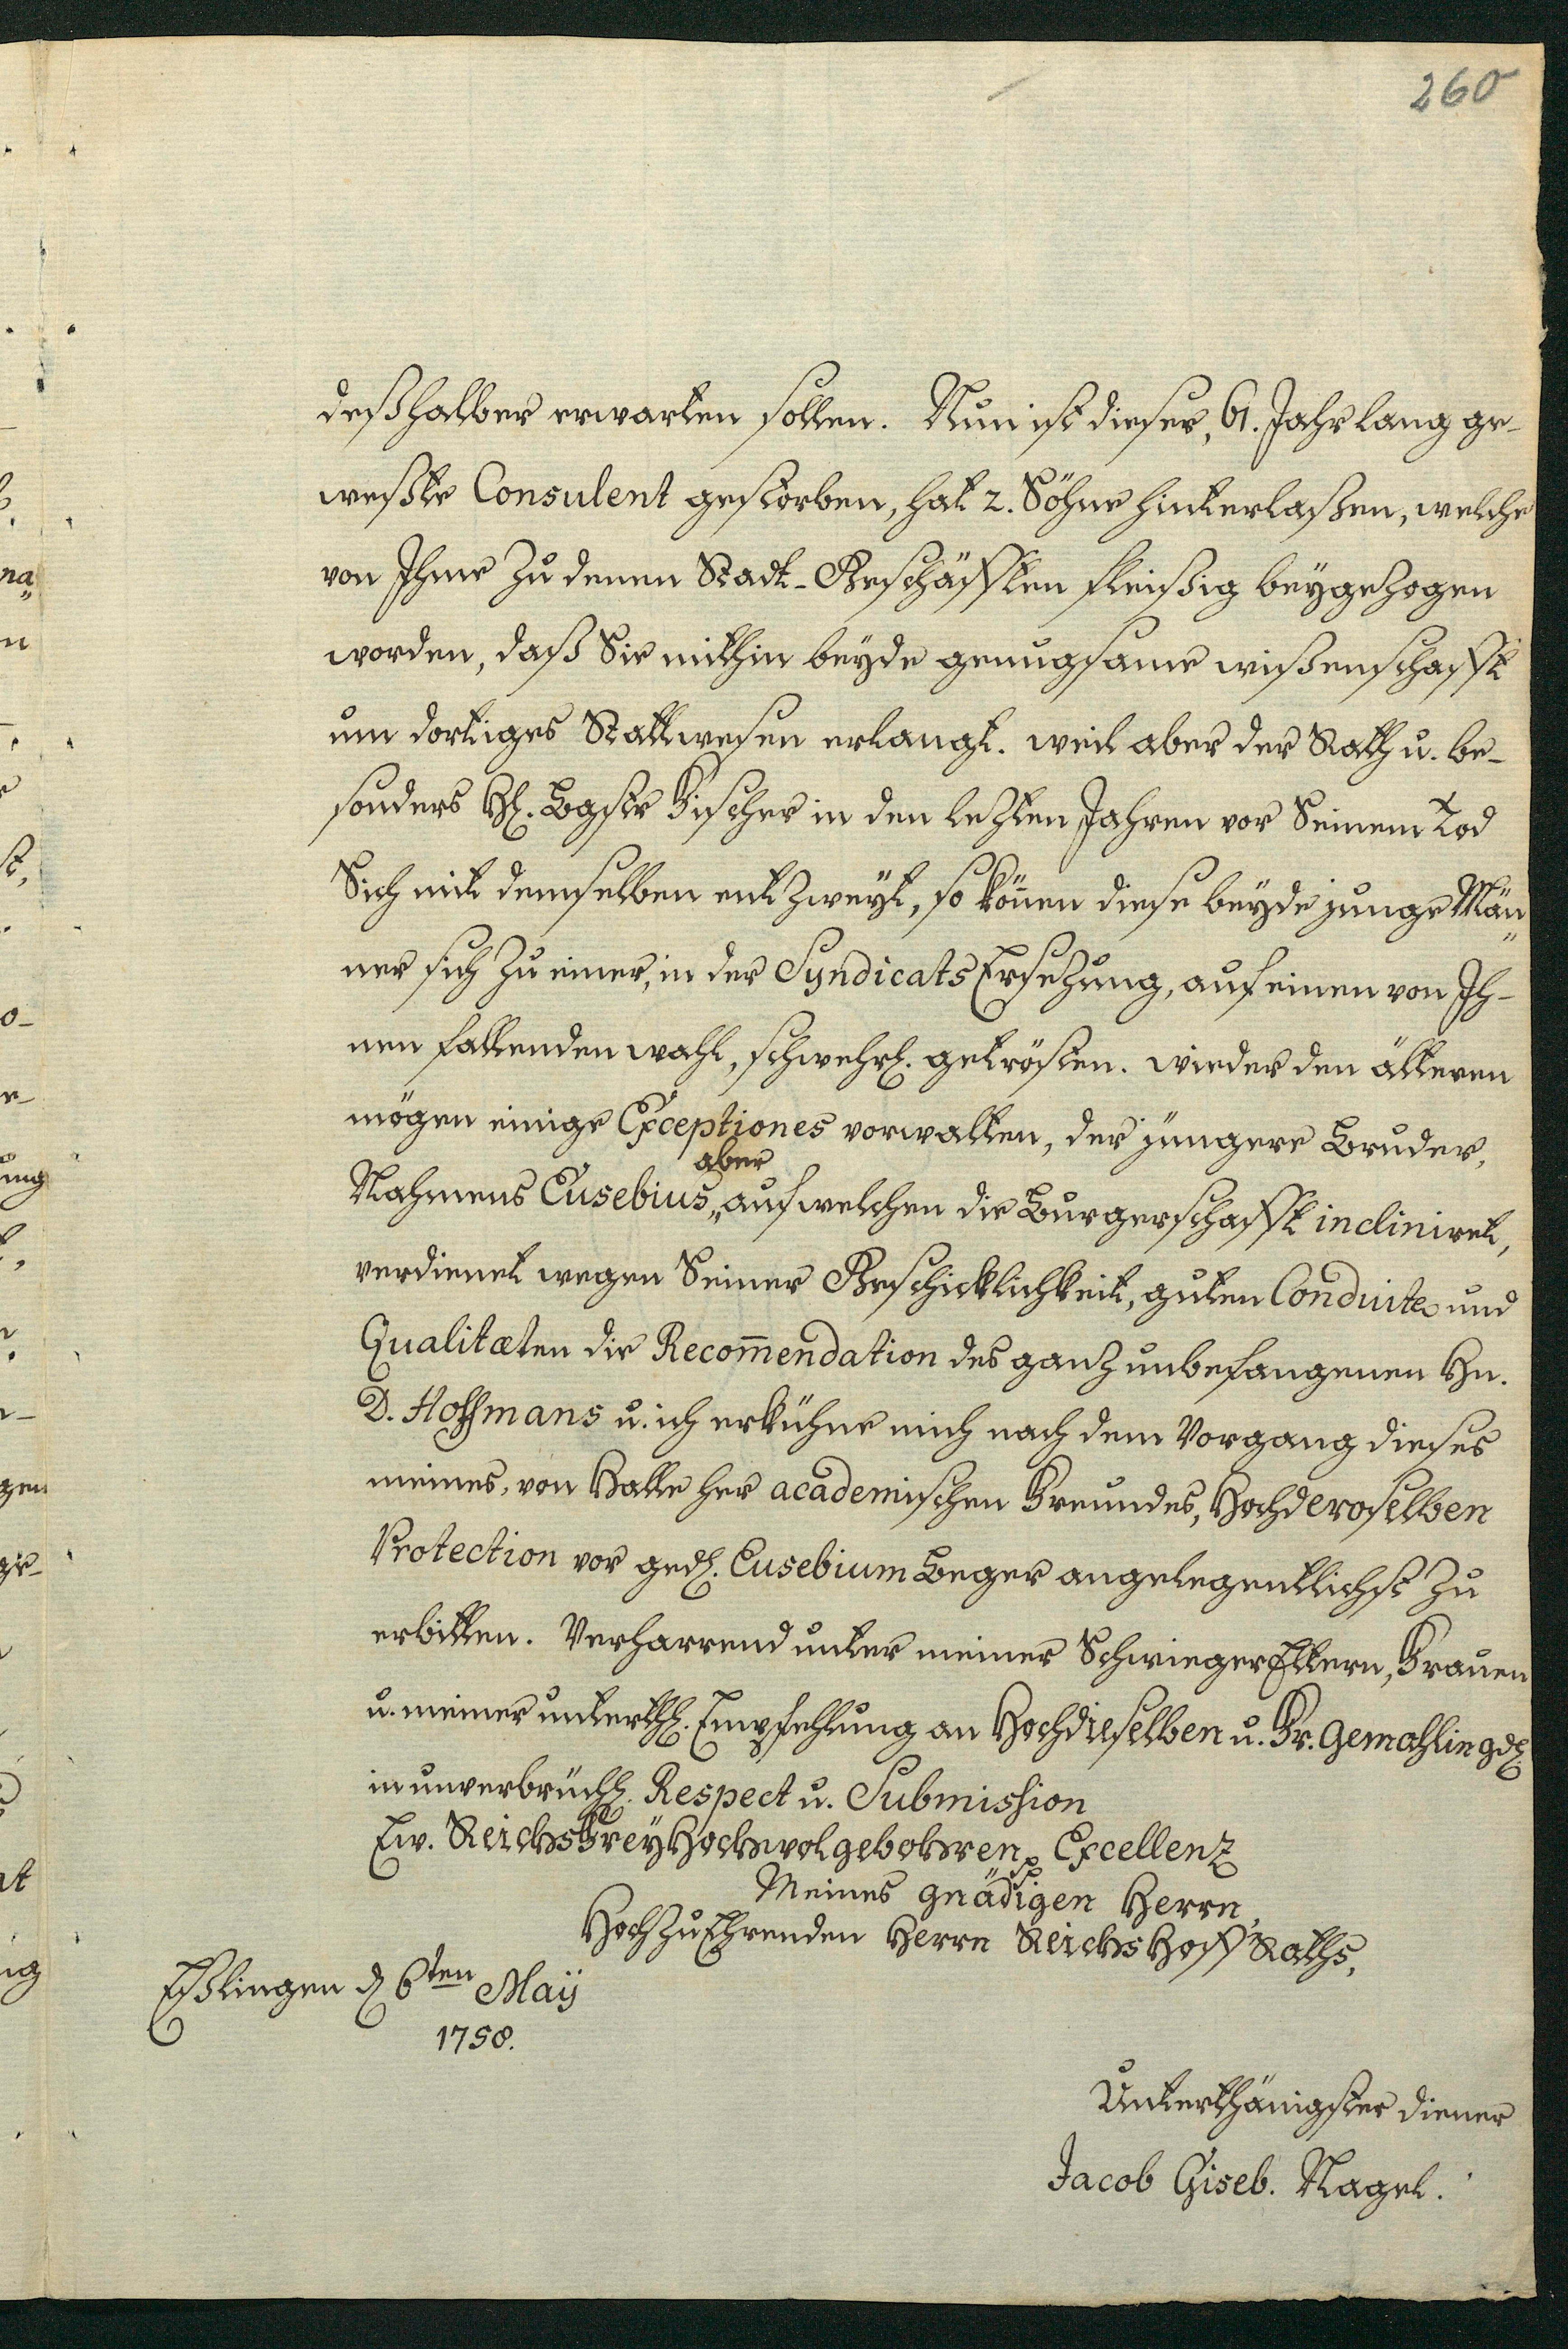 260
deßhalber erwarten sollen. Nun ist dieser, 61. Jahr lang ge-
weßte Consulent gestorben, hat 2. Söhne hinterlaßen, welche
von Ihme zu denen Stadt-Geschäfften fleißig beygezogen
worden, daß Sie mithin beyde genugsame wißenschafft
um dortiges Stattwesen erlangt. weil aber der Rath u. be-
sonders H. Bgstr Fischer in den lezten Jahren vor Seinem Tod
Sich mit demselben entzweyt, so können diese beyde junge Män„
ner sich zu einer, in der Syndicats Ersezung, auf einen von Ih-
nen fallenden wahl, schwehrl. getrösten. wieder den älteren
mögen einige Exceptiones vorwalten, der jüngere Bruder,
aber
Nahmens Eusebius„ auf welchen die Burgerschafft inclinirt,
verdienet wegen Seiner Geschicklichkeit, guten Conduite und
Qualitæten die Recom̄endation des ganz unbefangenen Hn.
D. Hoffmans u. ich erkühne mich nach dem Vorgang dieses
meines, von Halle her academischen Freundes, Hochderoselben
Protection vor ged. Eusebium Beger angelegentlichst zu
erbitten. Verharrend unter meiner SchwiegerEltern, Frauen
u. meiner unterth. Empfehlung an Hochdieselben u. Fr. Gemahlin gd.
in unverbrüchl. Respect u. Submission
Ew. ReichsFreyHochwolgebohren Excellenz
Meines gnädigen Herrn,
HochzuEhrenden Herrn ReichsHoffRaths,
Eßlingen d. 6ten Maÿ
1758.
Unterthänigster diener
Jacob Giseb. Nagel.